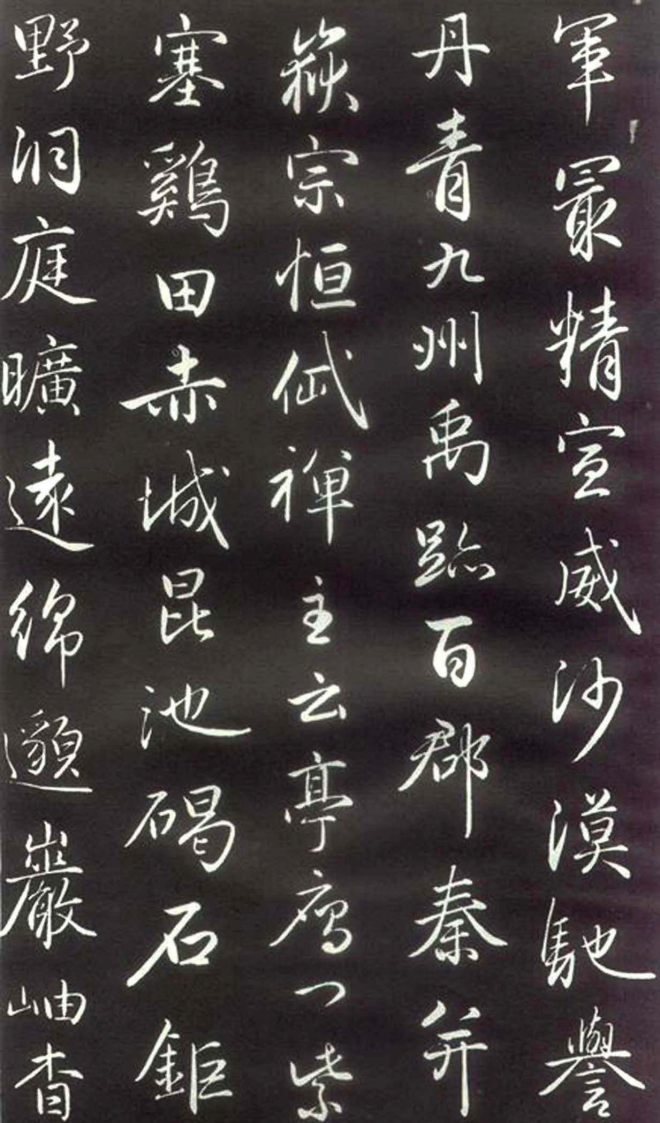 軍最精宣威沙漠馳譽
丹青九州禹跡百郡秦并
嶽宗恒岱禪主云亭鴈門紫
塞鷄田赤城昆池碣石鉅
野洞庭曠遠綿邈巖岫杳